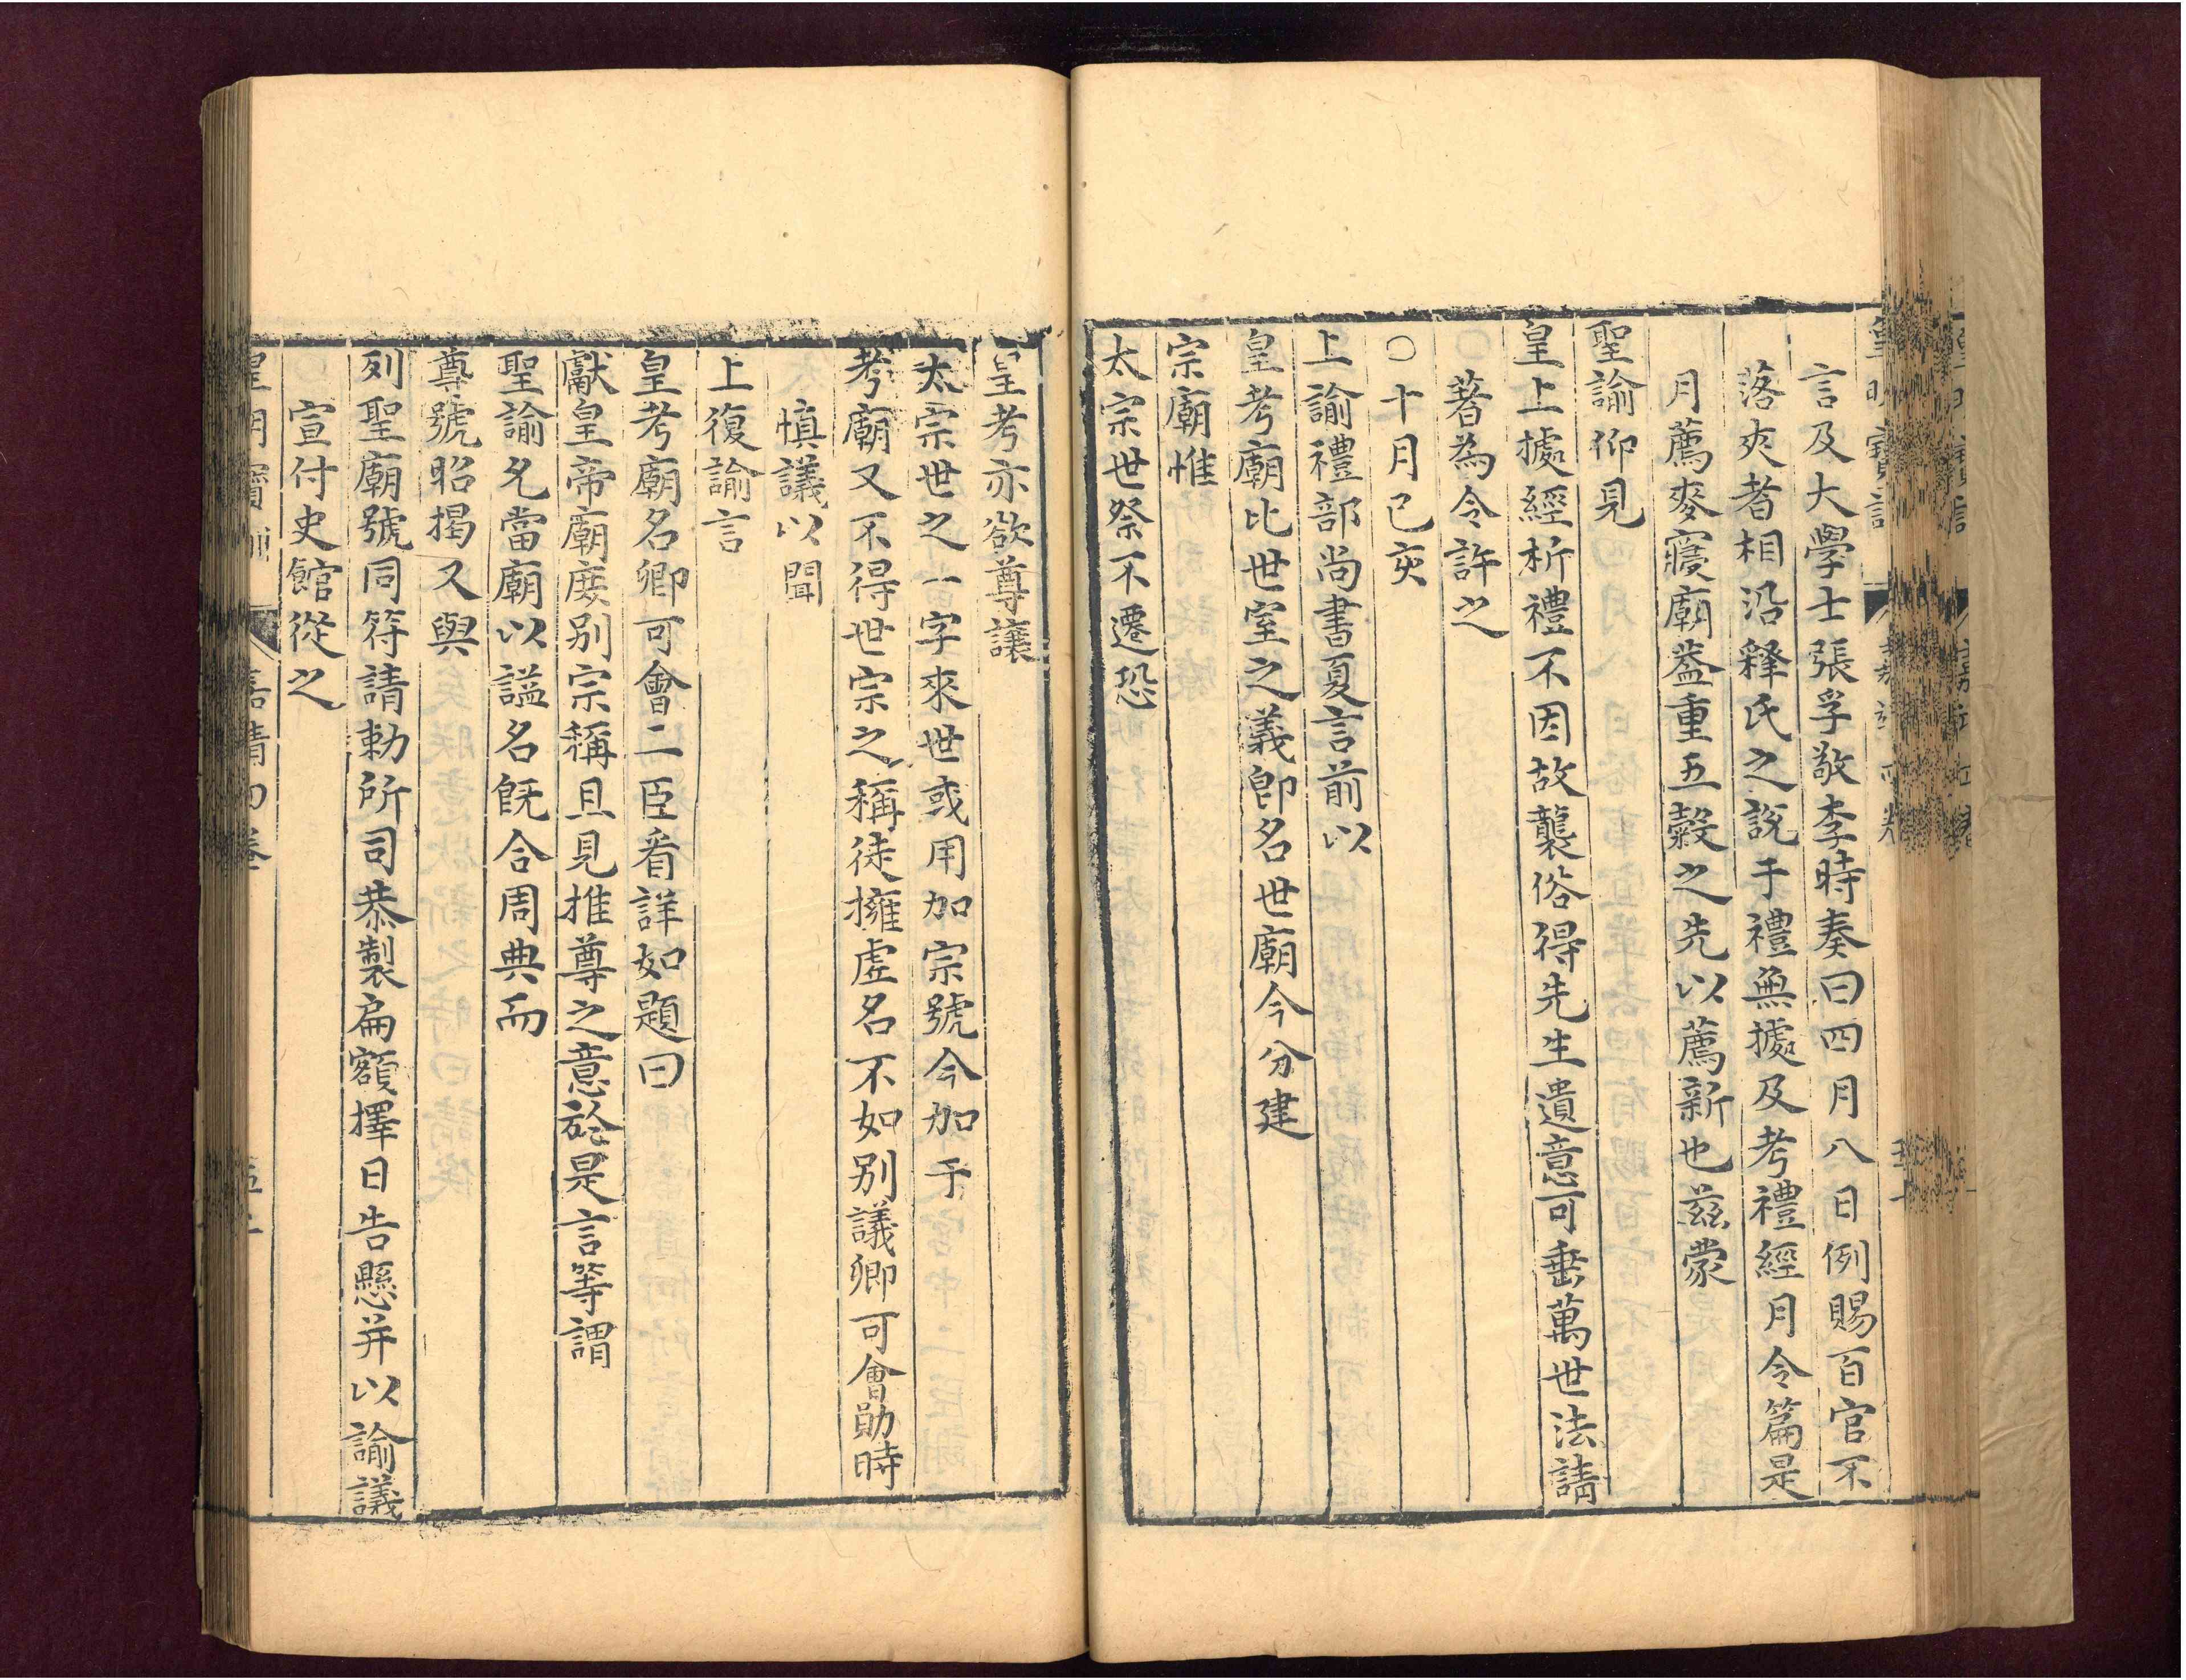 言及大學士張孚敬李時奏曰四月八日例賜百官不
落夾者相沿釋氏之說于禮無據及考禮經月令篇是
月薦麥寢廟葢重五穀之先以薦新也茲蒙
聖諭仰見
皇上據經析禮不因故襲俗得先生遺意可垂萬世法請
著為令許之
○十月己亥
上諭禮部尚書夏言前以
皇考廟比世室之義卽名世廟今分建
宗廟惟
太宗世祭不遷恐
皇考亦欲尊讓
太宗世之一字來世或用加宗號今加于
考廟又不得世宗之稱徒擁虛名不如別議卿可會勛時
慎議以聞
上復諭言
皇考廟名卿可會二臣看詳如題曰
獻皇帝廟庻别宗稱且見推尊之意於是言等謂
聖諭允當廟以謚名旣合周典而
尊號昭揭又與
列聖廟號同符請勅所司恭製扁額擇日告懸并以諭議
宣付史館從之